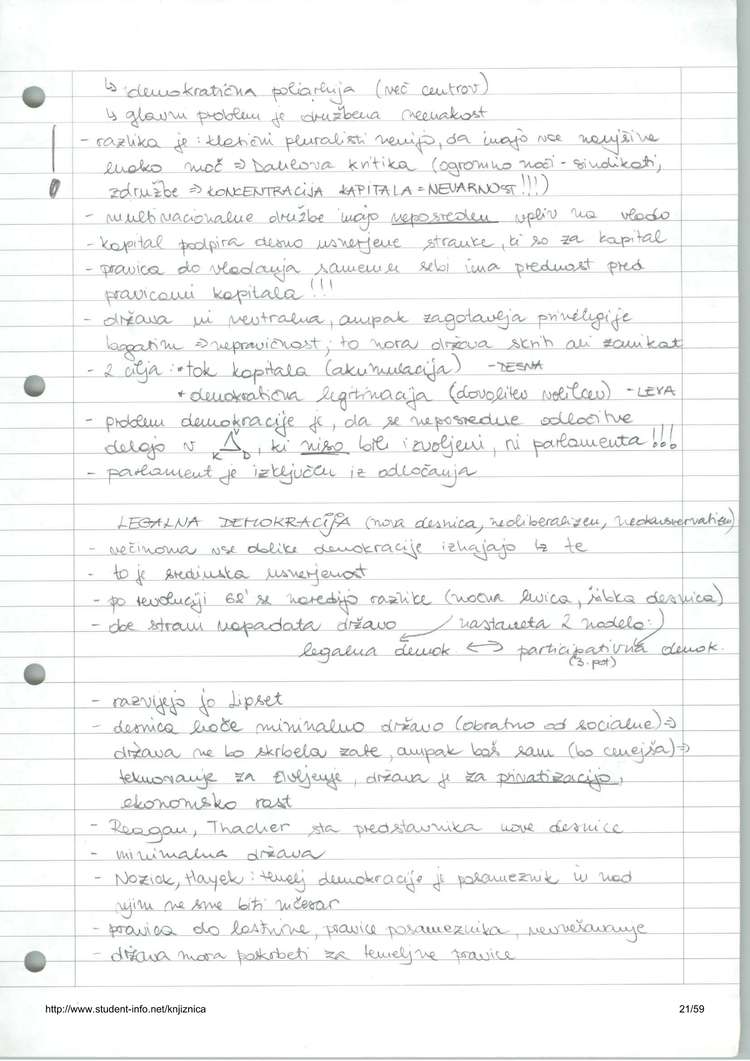 ↳ demokratična poliarhija (več centrov)
↳ glavni problem je družbena neenakost
- razlika je: klasični pluralisti menijo, da imajo vse manjšine
enako moč ⇒ Dahlova kritika (ogromno moči - sindikati,
združbe ⇒ KONCENTRACIJA KAPITALA = NEVARNOST!!!)
- multinacionalne družbe imajo neposreden vpliv na vlado
- kapital podpira desno usmerjene stranke, ki so za kapital
- pravica do vladanja samemu sebi ima prednost pred
pravicami kapitala!!!
- država ni nevtralna, ampak zagotavlja privilegije
bogatim ⇒ nepravičnost, to mora država skriti ali zanikat
- 2 cilja: • tok kapitala (akumulacija) - DESNA
• demokratična legitimacija (dovolitev volilcev) - LEVA
- problem demokracije je, da se neposredne odločitve
delajo v V K D, ki niso bile izvoljeni, ni parlamenta!!!
- parlament je izključen iz odločanja
LEGALNA DEMOKRACIJA (nova desnica, neoliberalizem, neokonservatizem)
- večinoma vse oblike demokracije izhajajo iz te
- to je sredinska usmerjenost
- po revoluciji 68' se naredijo razlike (močna levica, šibka desnica)
- obe strani napadata državo / nastaneta 2 modela:
legalna demok ↔ participativna demok.
(3. pot)
- razvijejo jo Lipset
- desnica hoče minimalno državo (obratno od socialne) ⇒
država ne bo skrbela zate, ampak boš sam (bo cenejša) ⇒
tekmovanje za življenje, država je za privatizacijo,
ekonomsko rast
- Reagan, Thacher sta predstavnika nove desnice
- minimalna država
- Nozick, Hayek: temelj demokracije je posameznik in nad
njim ne sme biti ničesar
- pravica do lastnine, pravice posameznika, nevmešavanje
- država mora poskrbeti za temeljne pravice
http://www.student-info.net/knjiznica
21/59